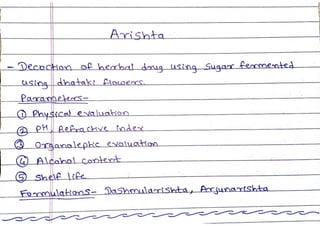 Arishta
- Decoction of herbal drug using sugar fermented
using dhataki flowers.
Parameters-
① Physical evaluation
② PH, Refractive index
③ Organoleptic evaluation
④ Alcohol content
⑤ Shelf life
Formulations- Dashmularishta, Arjunarishta